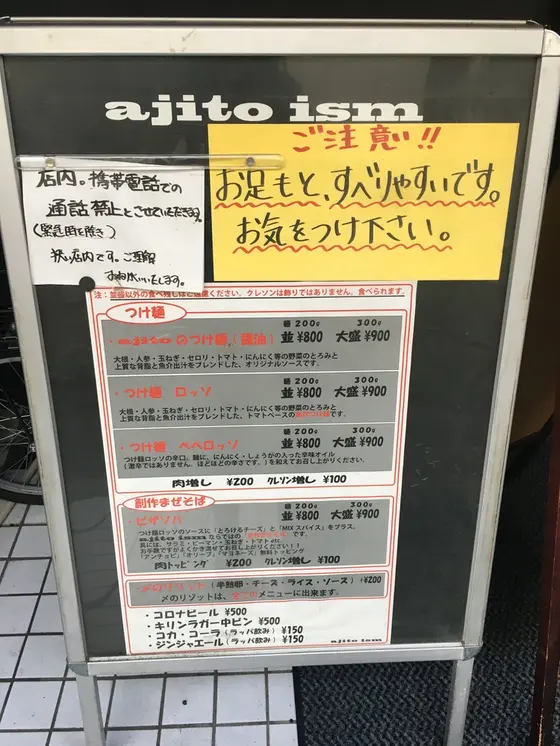 ajito ism
ご注意!!
お足もと、すべりやすいです。
お気をつけ下さい。
店内。携帯電話での
通話禁止とさせていただきます。
(緊急時を除き)
狭い店内です。ご理解
お願いいたします。
注:並盛以外の食べ残しはご遠慮ください。クレソンは飾りではありません。食べられます。
つけ麺
麺 200g 300g
・ajitoのつけ麺(醤油) 並 ¥800 大盛 ¥900
大根・人参・玉ねぎ・セロリ・トマト・にんにく等の野菜のとろみと
上質な背脂と魚介出汁をブレンドした、オリジナルソースです。
麺 200g 300g
・つけ麺 ロッソ 並 ¥800 大盛 ¥900
大根・人参・玉ねぎ・セロリ・トマト・にんにく等の野菜のとろみと
上質な背脂と魚介出汁をブレンドした、トマトベースの
麺 200g 300g
・つけ麺 ペペロッソ 並 ¥800 大盛 ¥900
つけ麺ロッソの辛口。麺に、にんにく・しょうがの入った辛味オイル
(激辛ではありません。ほどほどの辛さです。)を和えてお召し上がりください。
肉増し ¥200 クレソン増し ¥100
創作まぜそば
麺 200g 300g
・ピザソバ 並 ¥800 大盛 ¥900
つけ麺ロッソのソースに「とろけるチーズ」と「MIXスパイス」をプラス。
ajito ism ならではの
具には、サラミ・ピーマン・玉ねぎ・トマト etc
お手数ですがよくかき混ぜてお召し上がりください!!
「アンチョビ」「オリーブ」「マヨネーズ」無料トッピング
肉トッピング ¥200 クレソン増し ¥100
〆のリゾット(半熟卵・チーズ・ライス・ソース) +¥200
〆のリゾットは、全てのメニューに出来ます。
・コロナビール ¥500
・キリンラガー中ビン ¥500
・コカ・コーラ(ラッパ飲み) ¥150
・ジンジャエール(ラッパ飲み) ¥150
ajito ism